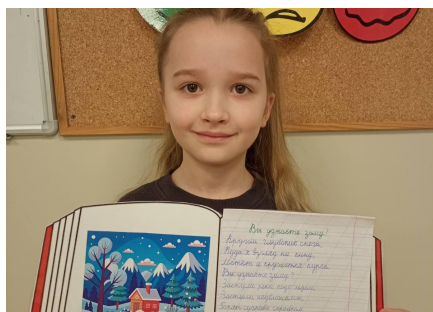 Вы узнаете зиму?
Кругом глубокие снега,
Куда я взгляд не кину.
Метёт и кружится пурга.
Вы узнаете зиму?
Заснули реки подо льдом,
Застыли неподвижно,